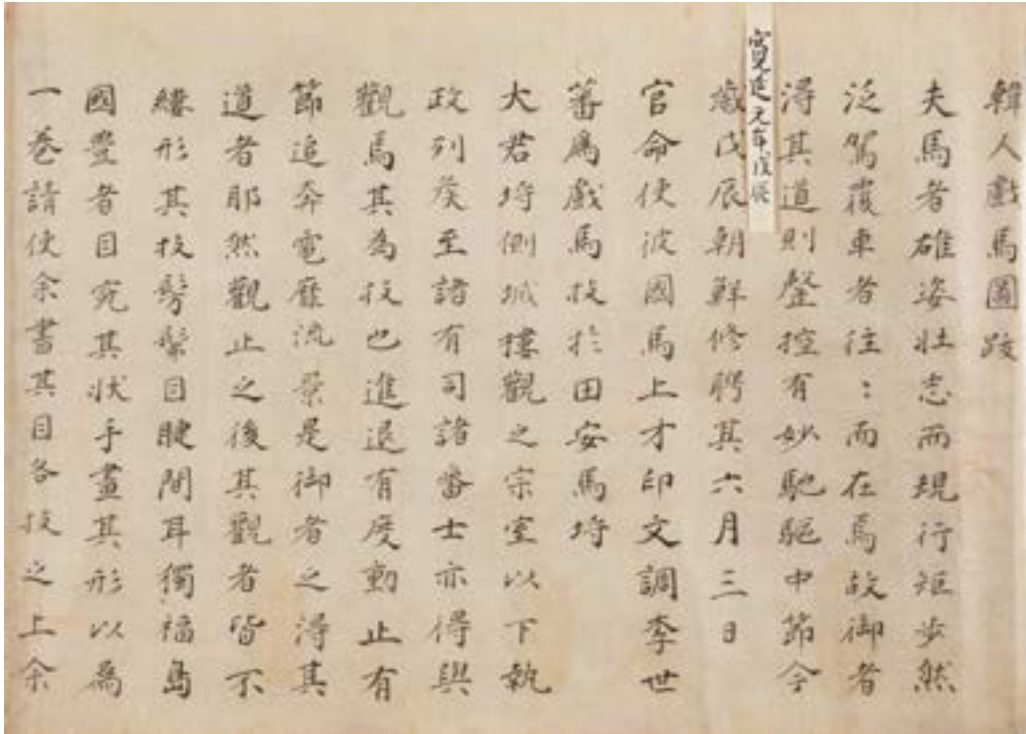 韓人戲馬圖跋
夫馬者雄姿壯志而規行矩步然
泛駕覆車者往〻而在焉故御者
得其道則罄控有妙馳驅中節今
寛延元年戊辰
歳戊辰朝鮮修聘其六月三日
官命使彼國馬上才印文調李世
蕃爲戲馬技於田安馬埒
大君埒側城樓觀之宗室以下執
政列矦至諸有司諸番士亦得與
觀馬其為技也進退有度動止有
節追奔電流景是御者之得其
道者耶然觀止之後其觀者皆不
形其技髣髴目睫間耳獨福島
國豐者目究其状手畫其形以為
一卷請使余書其目各技之上余